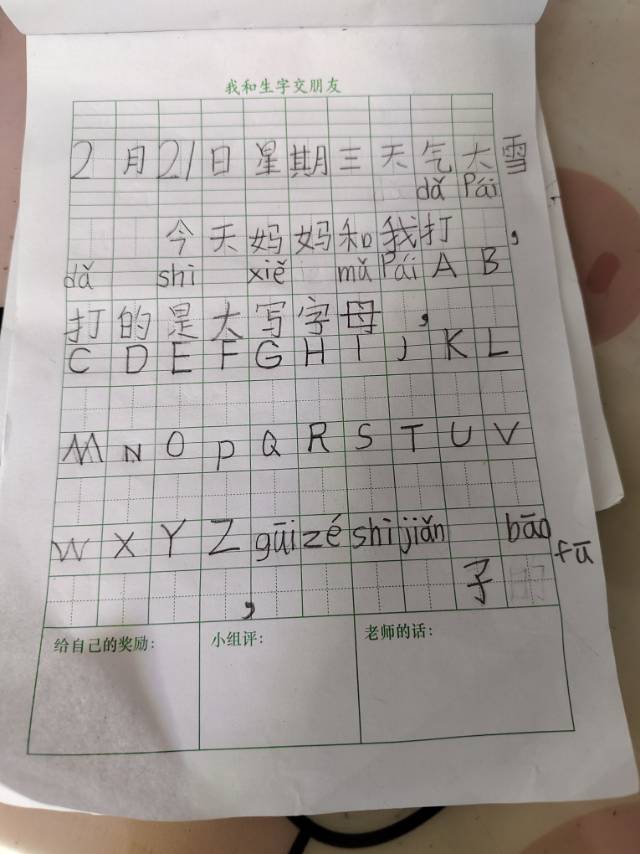 我和生字交朋友
2月21日星期三天气大雪
dǎ Pái
今天妈妈和我打,
dǎ shì xiě mǔ Pái A B
打的是大写字母,
C D E F G H I J K L
M N O P Q R S T U V
W X Y Z gūi zé shì jiǎn bāo fū
, 子
给自己的奖励: 小组评: 老师的话: